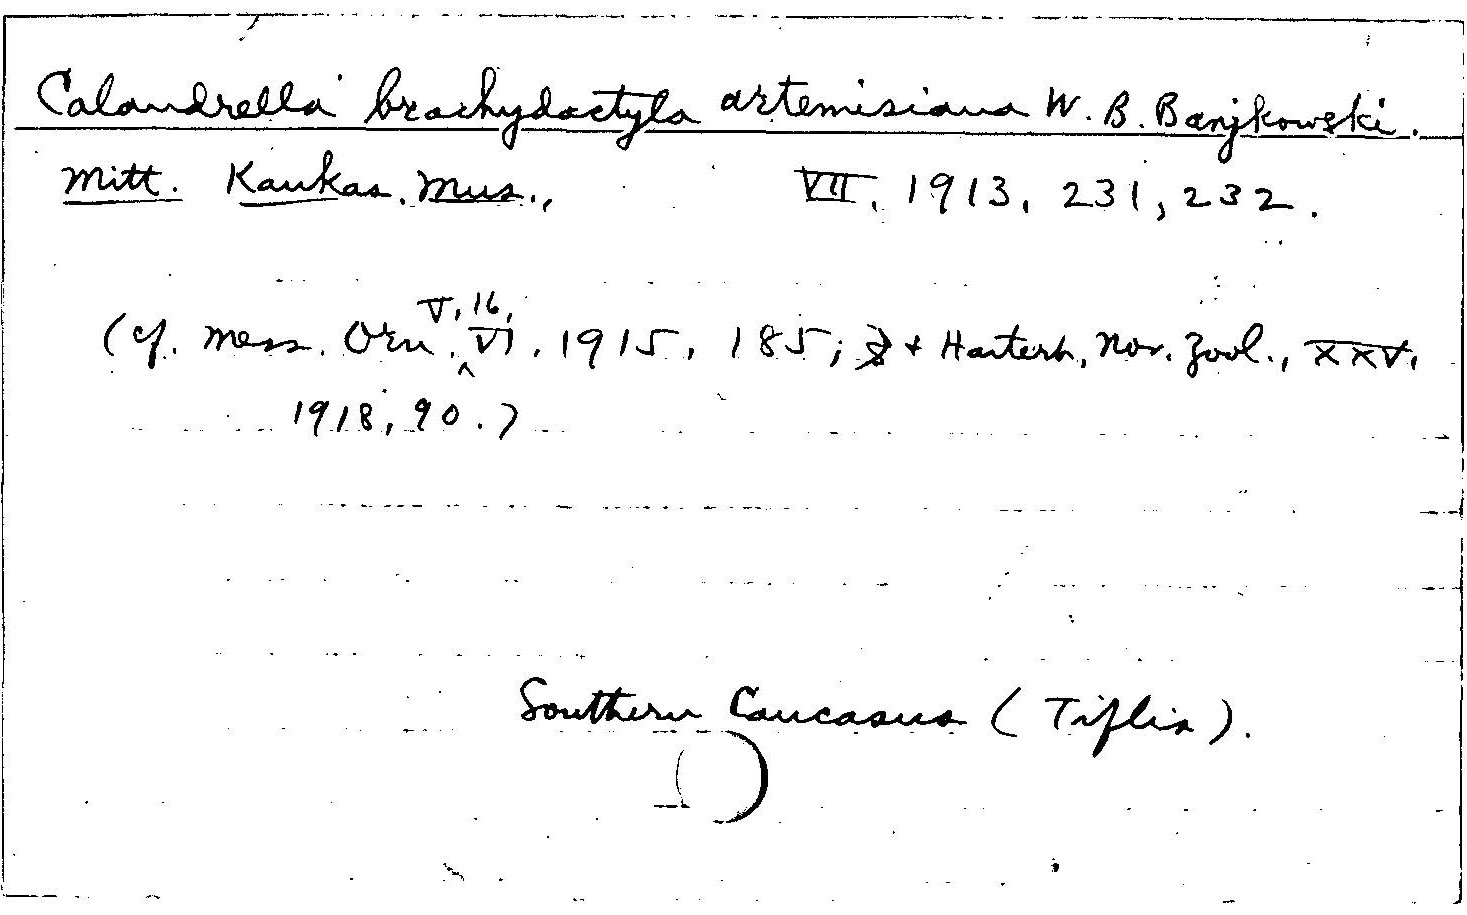 Calandrella brachydactyla artemisiana W. B. Banjkowski.
Mitt. Kaukas. Mus., VII, 1913, 231, 232.
(cf. Mess. Orn. V, 16, VI, 1915, 185; & + Hartert, Nov. Zool., XXV,
1918, 90.)
Southern Caucasus (Tiflis).